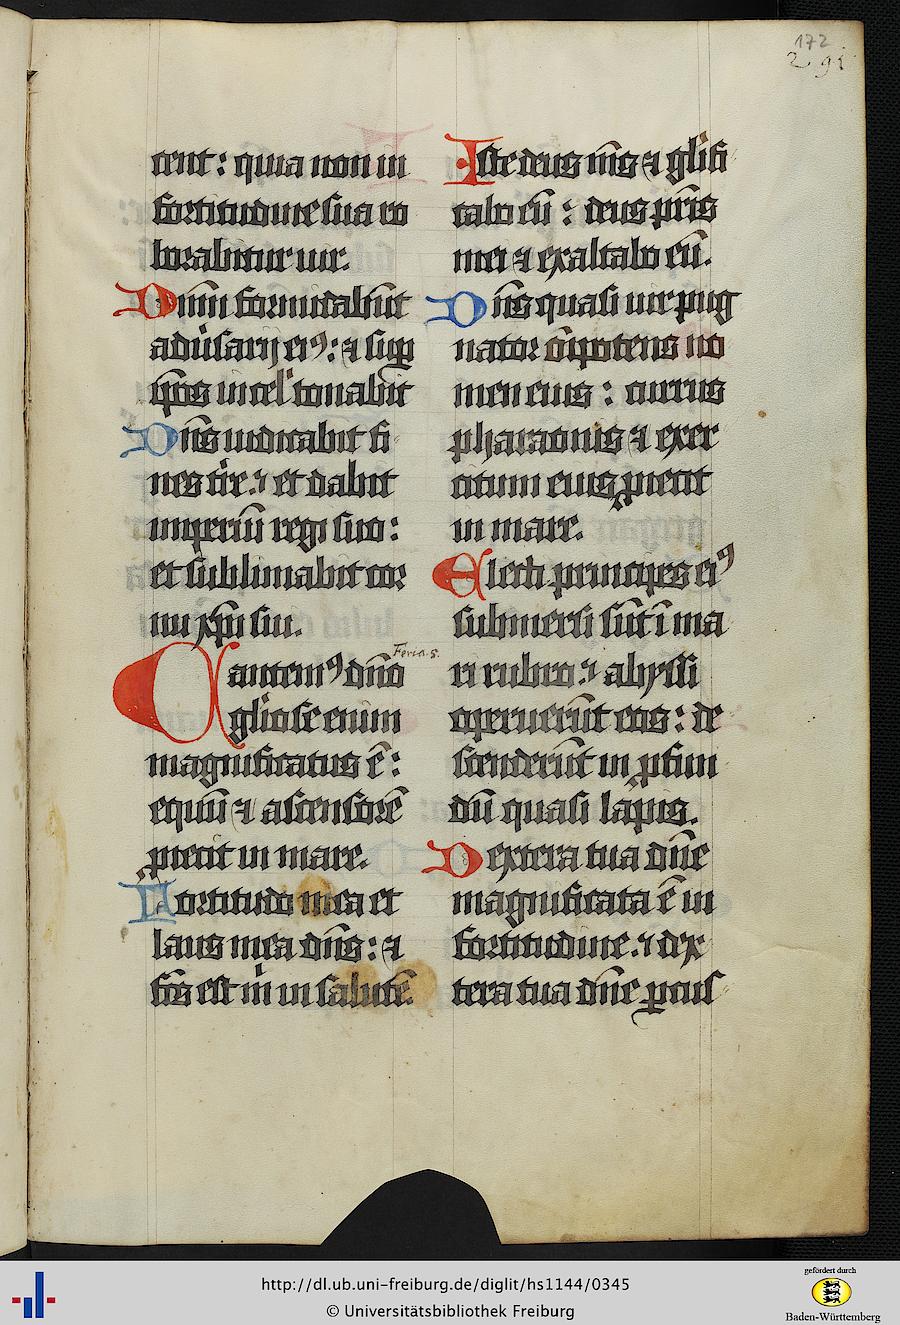 172
291
cent: quia non in
fortitudine sua ro
borabitur uir.
Dnm̄ formidabūt
adūsarij eiꝰ: ⁊ suꝑ
ip̄os in cel' tonabit
Dn̄s iudicabit fi
nes tr̄e.⁊ et dabit
imperiū regi suo:
et sublimabit cor
nu xp̄i sui.
Feria. 5.
Cantemꝰ dn̄o
gl'iose enim
magnificatus ē:
equū ⁊ ascensorē
ꝓiecit in mare.
Fortitudo mea et
laus mea dn̄s: ⁊
fc̄s est m̄ in salutē.
Iste deus m̄s ⁊ gl'ifi
cabo eū: deus pr̄is
mei ⁊ exaltabo eū.
Dn̄s quasi uir pug
nator ōīpotens no
men eius: currus
pharaonis ⁊ exer
citum eius ꝓiecit
in mare.
Electi principes eiꝰ
submersi sūt ī ma
ri rubro.⁊ abyssi
operuerūt eos: de
scenderūt in ꝓfun
dū quasi lapis.
Dextera tua dn̄e
magnificata ē in
fortitudine.⁊ dex
tera tua dn̄e ꝑcus
http://dl.ub.uni-freiburg.de/diglit/hs1144/0345
© Universitätsbibliothek Freiburg
gefördert durch
Baden-Württemberg